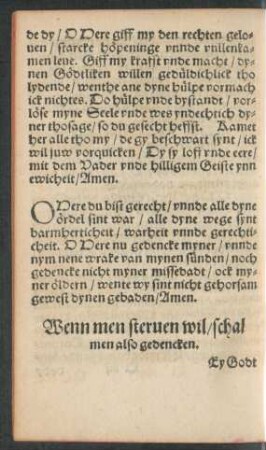 de dy / O Here giff my den rechten gelo-
uen / starcke höpeninge vnnde vullenka-
men leue. Giff my krafft vnde macht / dy-
nen Gödtliken willen gedüldichlick tho
lydende / wenthe ane dyne hülpe vormach
ick nichtes. Do hülpe vnde bystandt / vor-
löse myne Seele vnde wes yndechtich dy-
ner thosage / so du gesecht heffst. Kamet
her alle tho my / de gy beschwart synt / ick
wil juw vorquicken / Dy sy loff vnde eere /
mit dem Vader vnde hilligem Geiste ynn
ewicheit / Amen.
O Here du bist gerecht / vnnde alle dyne
ördel sint war / alle dyne wege synt
barmherticheit / warheit vnnde gerechti-
cheit. O Here nu gedencke myner / vnnde
nym nene wrake van mynen sünden / noch
gedencke nicht myner missedadt / ock my-
ner öldern / wente wy sint nicht gehorsam
gewest dynen gebaden / Amen.
Wenn men steruen wil / schal
men also gedencken.
Ey Godt